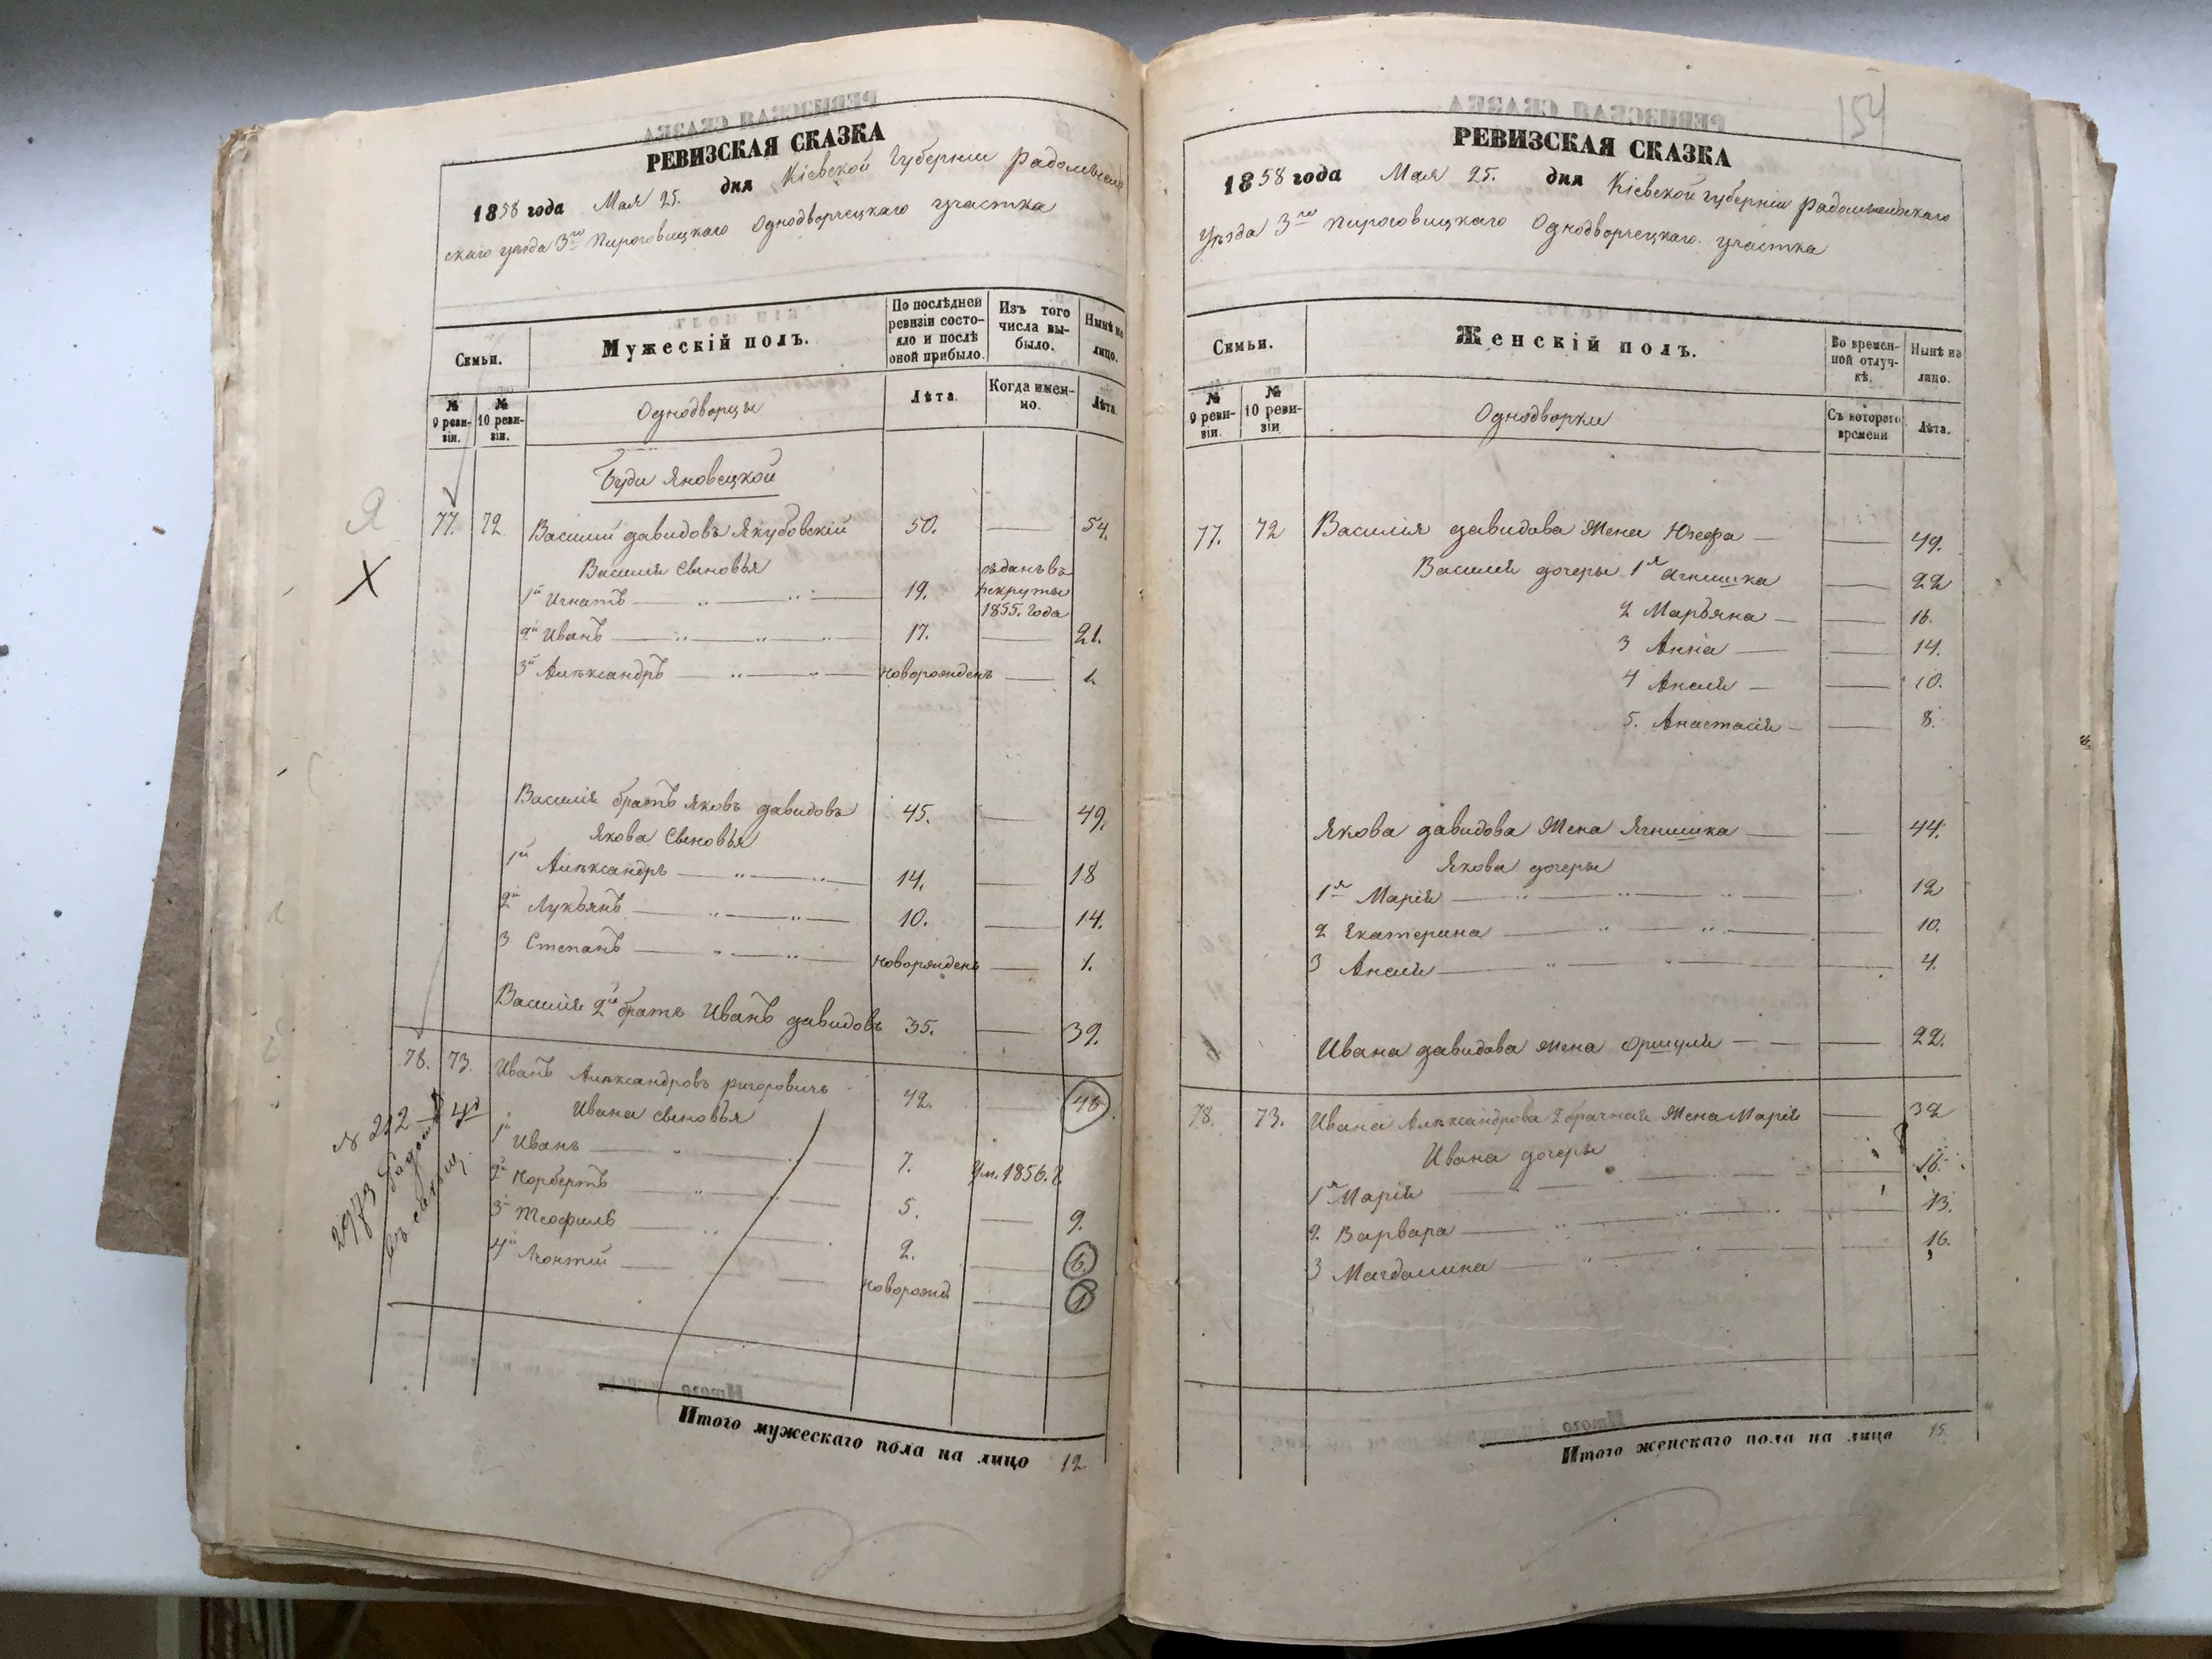 РЕВИЗСКАЯ СКАЗКА
1858 года Мая 25. дня Кіевской Губерніи Радомысль
скаго уѣзда 3го Пироговицкаго Однодворческаго участка
Семьи.
Мужескій полъ.
По послѣдней ревизіи состояло и послѣ оной прибыло.
Изъ того числа выбыло.
Нынѣ на лицо.
№ 9 ревизіи.
№ 10 ревизіи.
Однодворцы
Лѣта
Когда именно.
Лѣта.
Буди Яновецкой
Я
Х
77. 72. Василий Давидовъ Якубовскій 50. — 54.
Василія Сыновья
1й Игнатъ — 19. отданъ въ рекруты 1855. года
2й Иванъ — 17. — 21.
3й Алѣксандръ — новорожденъ — 1.
Василія братъ Яковъ Давидовъ 45. — 49.
Якова Сыновья
1й Алѣксандръ — 14. — 18
2й Лукьянъ — 10. — 14.
3 Степанъ — новорожденъ — 1.
Василія 2й братъ Иванъ Давидовъ 35. — 39.
78. 73. Иванъ Алѣксандровъ Ригоровичъ 42. — 46
Ивана Сыновья
1й Иванъ — 7. Ум. 1856. г.
2й Норбертъ — 5. — 9.
3й Теофиль — 2. — 6.
4й Лѣонтій — новорожд. — 1
№ 212
2973
Итого мужескаго пола на лицо 12.
154
РЕВИЗСКАЯ СКАЗКА
1858 года Мая 25. дня Кіевской Губерніи Радомысльскаго
Уѣзда 3го Пироговицкаго Однодворческаго участка
Семьи.
Женскій полъ.
Во временной отлучкѣ.
Нынѣ на лицо.
№ 9 ревизіи.
№ 10 ревизіи
Однодворки
Съ котораго времени
Лѣта.
77. 72 Василія Давидова Жена Юзефа — 49.
Василія дочеры 1я Ягнишка — 22
2 Марьяна — 16.
3 Анна — 14.
4 Анеля — 10.
5. Анастасія — 8.
Якова Давидова Жена Ягнишка — 44.
Якова дочеры
1я Марія — 12
2 Екатерина — 10.
3 Анеля — 4.
Ивана Давидова Жена Оршуля — 22.
78. 73. Ивана Алѣксандрова 2 брачная Жена Марія — 32
Ивана дочеры
1я Марія — 16.
2. Варвара — 13.
3 Магдалина — 16.
Итого женскаго пола на лицо 15